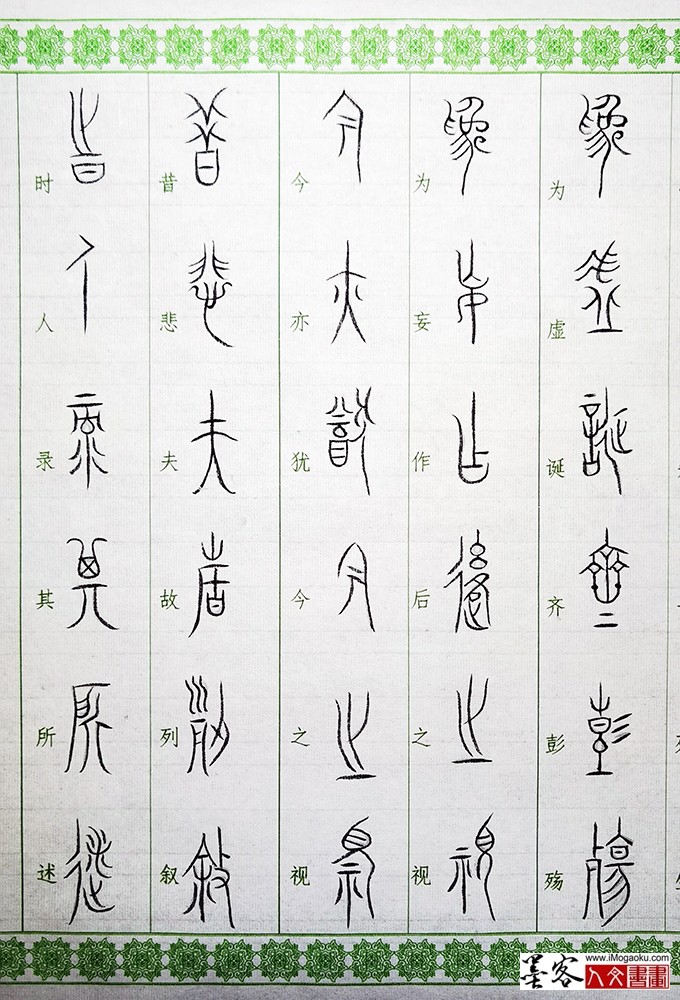 为虚诞齐彭殇
为妄作后之视
今亦犹今之视
昔悲夫故列叙
时人录其所述
墨客
www.iMogaoku.com
人文書畫